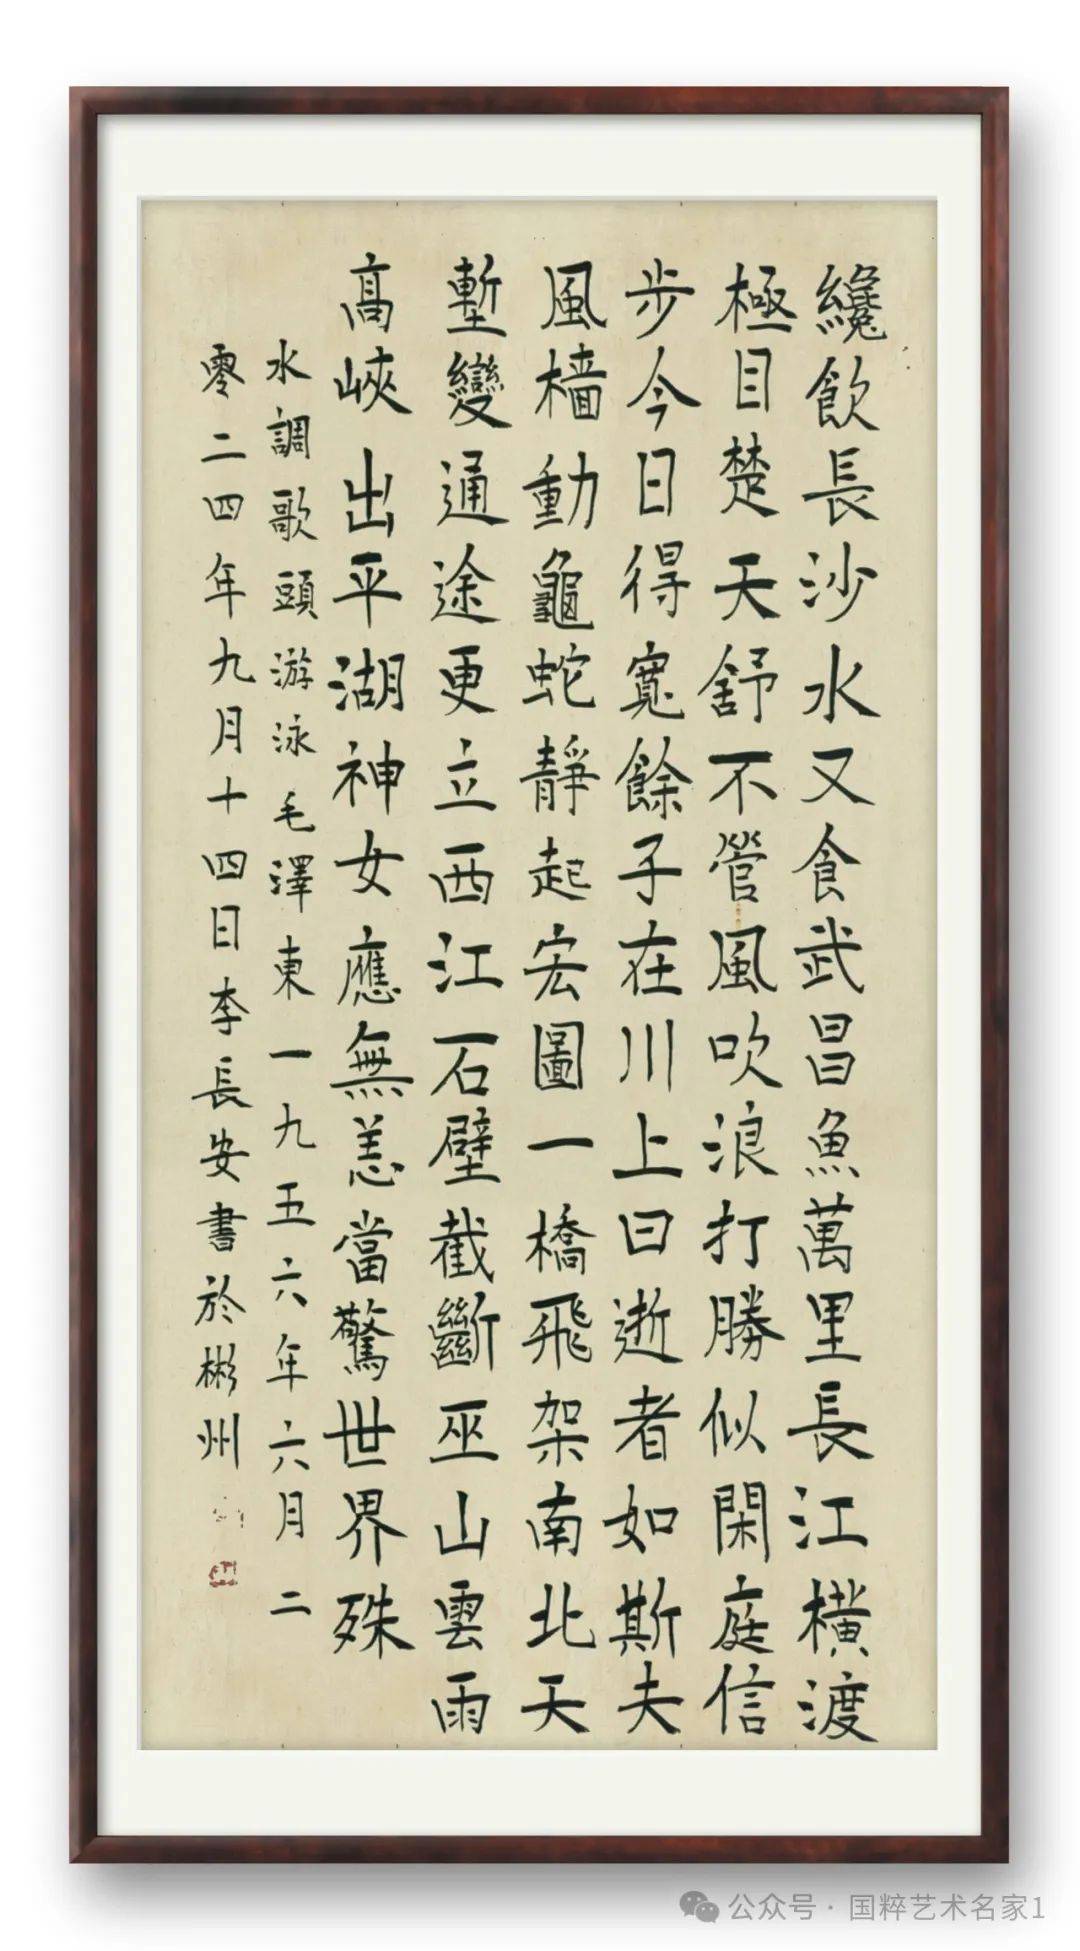 纔飲長沙水又食武昌魚萬里長江橫渡
極目楚天舒不管風吹浪打勝似閑庭信
步今日得寬餘子在川上曰逝者如斯夫
風檣動龜蛇靜起宏圖一橋飛架南北天
塹變通途更立西江石壁截斷巫山雲雨
高峽出平湖神女應無恙當驚世界殊
水調歌頭游泳毛澤東一九五六年六月二
零二四年九月十四日李長安書於彬州
公众号·国粹艺术名家1